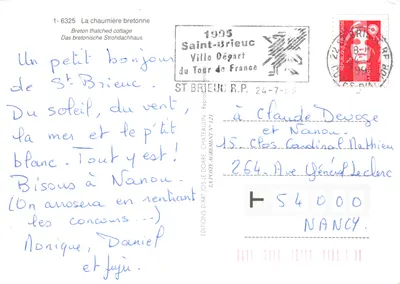 1- 6325 La chaumière bretonne
Breton thatched cottage
Das bretonische Strohdachhaus
Un petit bonjour
de St Brieuc.
Du soleil, du vent,
la mer et le p'tit
blanc. Tout y est!
Bisous à Nanou.
(On arrosera en rentrant
les concours...)
Monique, Daniel
et
1995
Saint-Brieuc
Ville Départ
du Tour de France
ST BRIEUC R.P. 24-7-
à Claude Devoge
et Nanou.
15, Clos Cardinal Mathieu
264, Ave Général Leclerc
54000
NANCY.